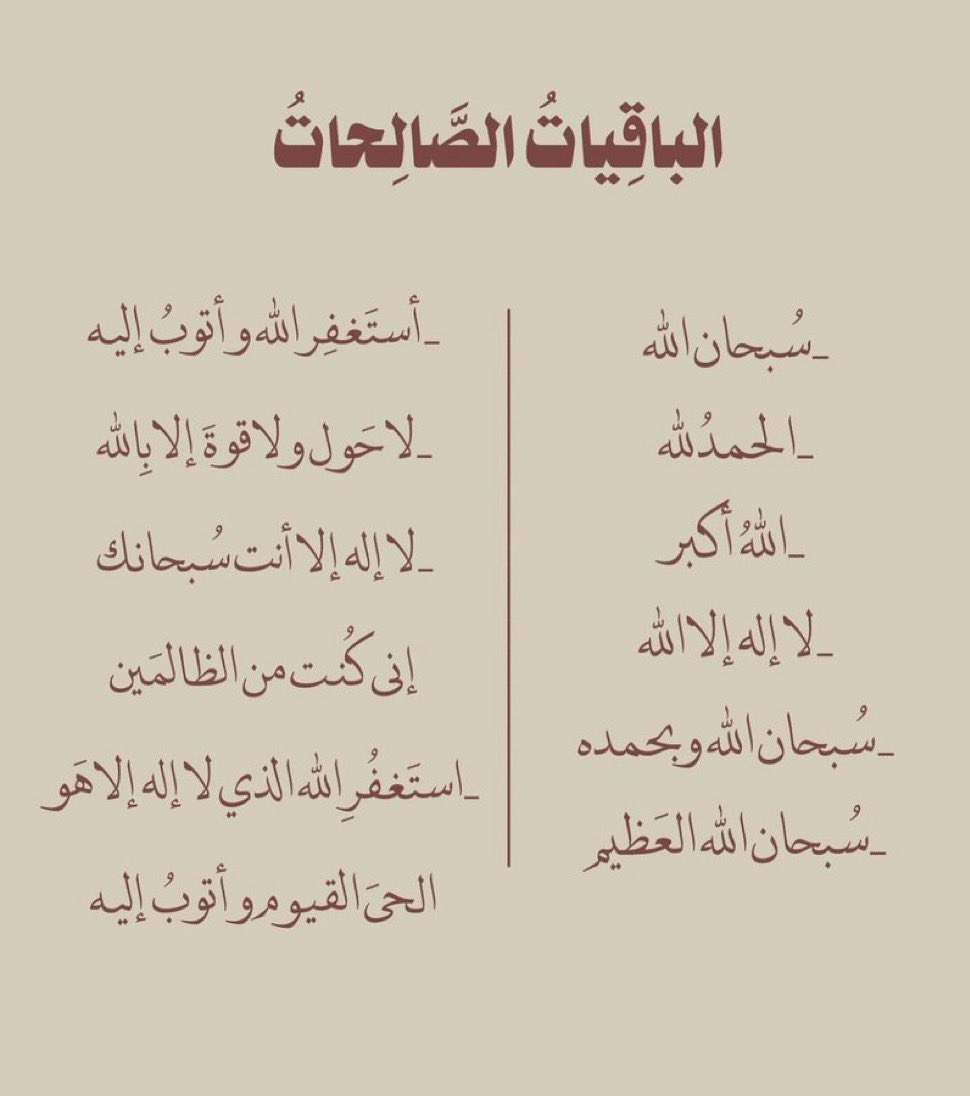 الباقِياتُ الصَّالِحاتُ
_سُبحان الله
_الحمدُ لله
_اللهُ أكبر
_لا إله إلا الله
_سُبحان الله وبحمده
_سُبحان الله العَظيم
_أستَغفِر الله و أتوبُ إليه
_لا حَول و لا قوةَ إلا بِالله
_لا إله إلا أنت سُبحانك
إنى كُنت من الظالمَين
_استَغفُرِ الله الذي لا إله إلا هَو
الحىَ القيوم و أتوبُ إليه